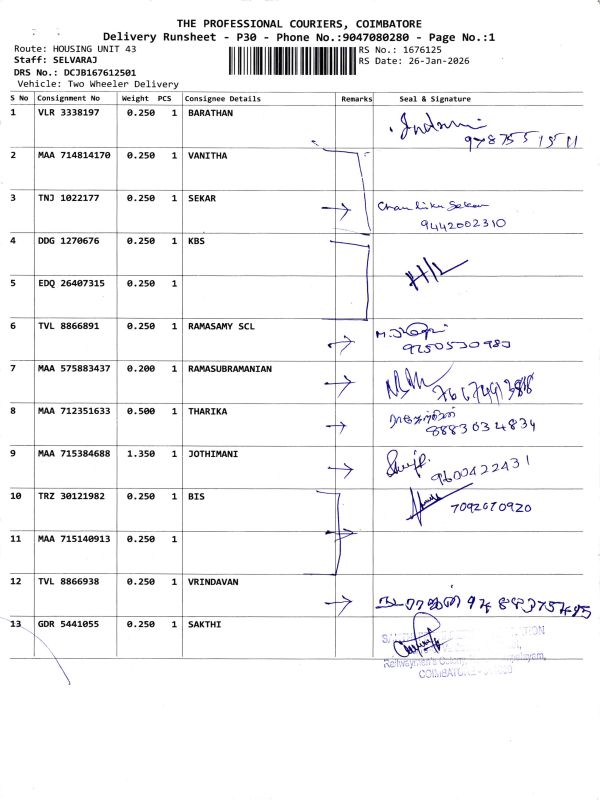 THE PROFESSIONAL COURIERS, COIMBATORE
Delivery Runsheet - P30 - Phone No.:9047080280 - Page No.:1
Route: HOUSING UNIT 43 RS No.: 1676125
Staff: SELVARAJ RS Date: 26-Jan-2026
DRS No.: DCJB167612501
Vehicle: Two Wheeler Delivery
S No Consignment No Weight PCS Consignee Details Remarks Seal & Signature
1 VLR 3338197 0.250 1 BARATHAN
2 MAA 714814170 0.250 1 VANITHA
3 TNJ 1022177 0.250 1 SEKAR
9442002310
4 DDG 1270676 0.250 1 KBS
5 EDQ 26407315 0.250 1
6 TVL 8866891 0.250 1 RAMASAMY SCL
7 MAA 575883437 0.200 1 RAMASUBRAMANIAN
8 MAA 712351633 0.500 1 THARIKA
8883034834
9 MAA 715384688 1.350 1 JOTHIMANI
9600422431
10 TRZ 30121982 0.250 1 BIS
7092070920
11 MAA 715140913 0.250 1
12 TVL 8866938 0.250 1 VRINDAVAN
13 GDR 5441055 0.250 1 SAKTHI
Railwaymen's Colony,
COIMBATORE -